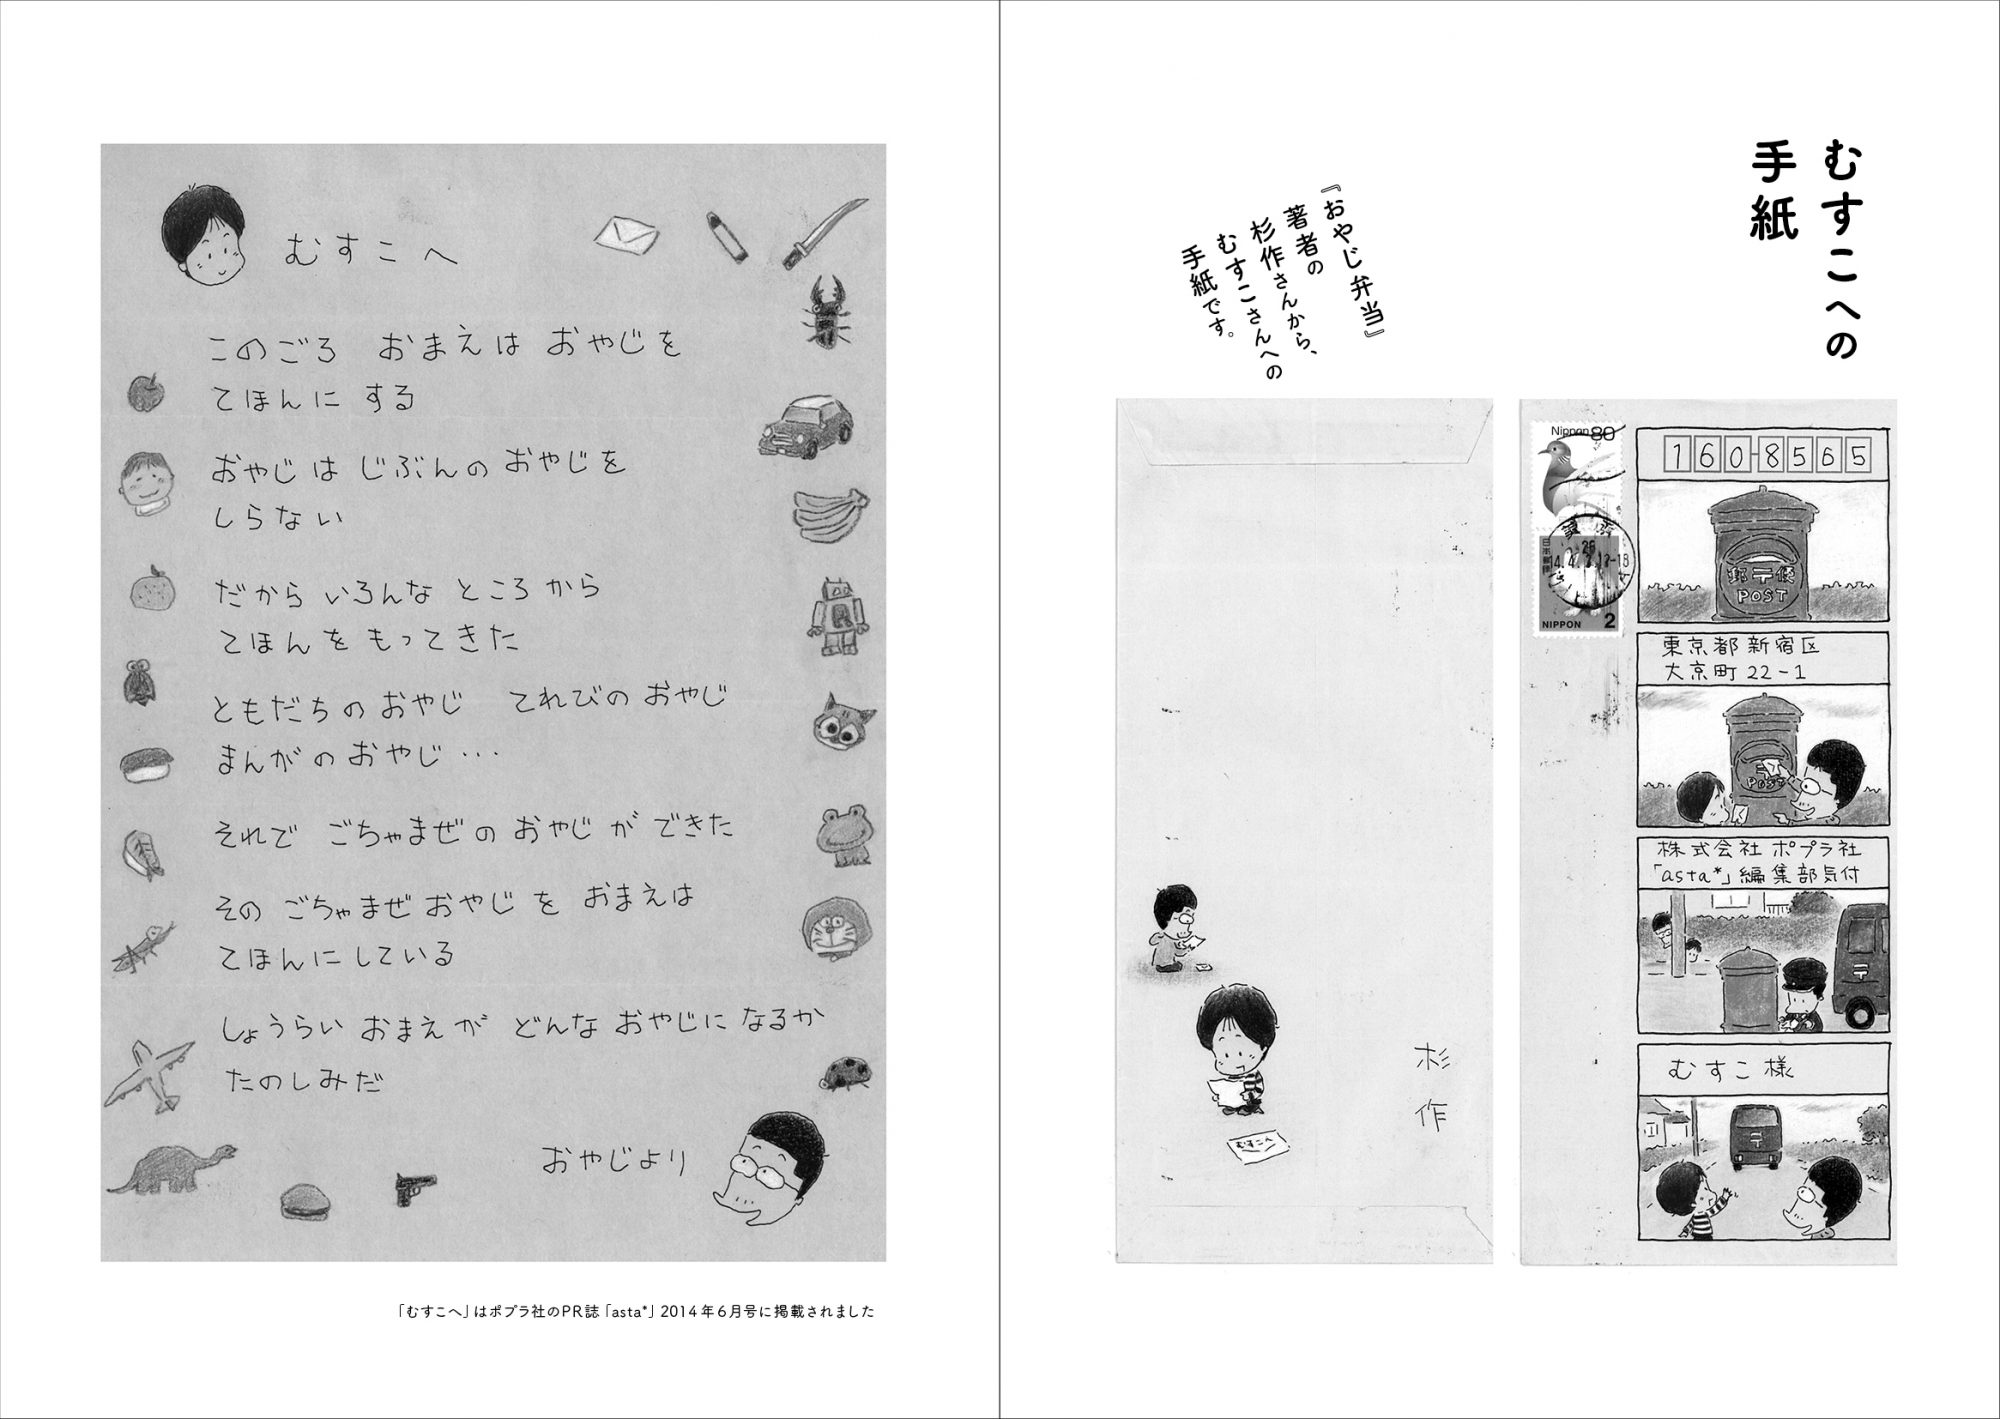 むすこへの
手紙
『おやじ弁当』
著者の
杉作さんから、
むすこさんへの
手紙です。
Nippon 80
日本郵便
NIPPON 2
160-8565
郵〒便
POST
東京都新宿区
大京町22-1
〒
POST
株式会社ポプラ社
「asta*」編集部気付
〒
むすこ様
〒
杉作
むすこへ
むすこへ
このごろ おまえは おやじを
てほんに する
おやじは じぶんの おやじを
しらない
だから いろんな ところから
てほんを もってきた
ともだちの おやじ てれびの おやじ
まんがの おやじ・・・
それで ごちゃまぜの おやじが できた
その ごちゃまぜ おやじを おまえは
てほんにしている
しょうらい おまえが どんな おやじに なるか
たのしみだ
おやじより
R
「むすこへ」はポプラ社のPR誌「asta*」2014年6月号に掲載されました